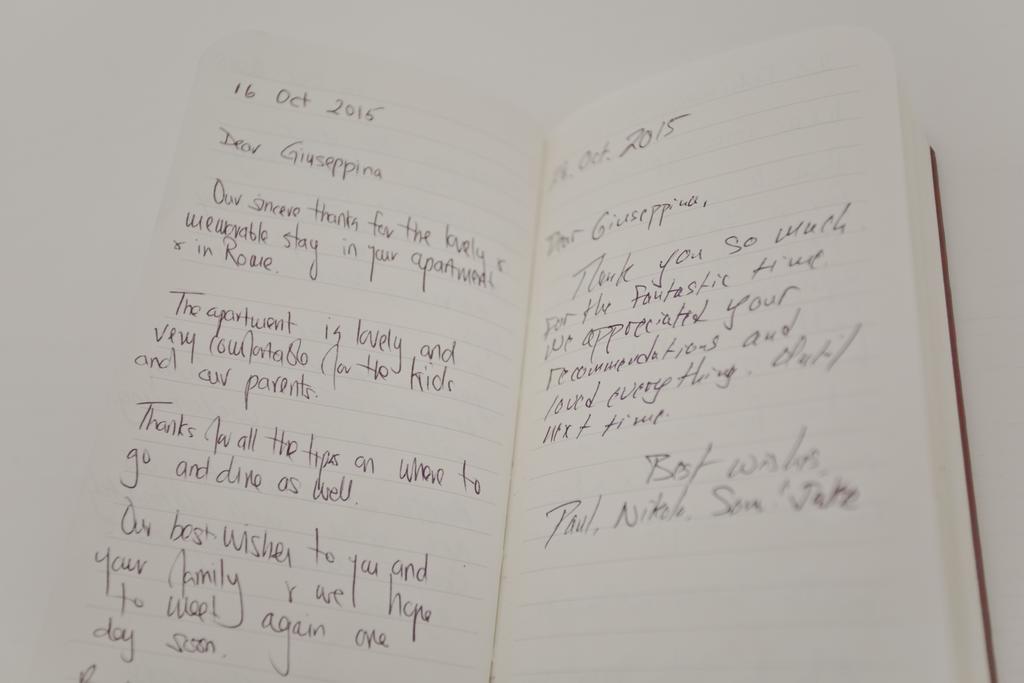 16 Oct 2015
Dear Giuseppina
Our sincere thanks for the lovely &
memorable stay in your apartment
& in Rome.
The apartment is lovely and
very comfortable for the kids
and our parents.
Thanks for all the tips on where to
go and dine as well.
Our best wishes to you and
your family & we hope
to meet again one
day soon.
Oct. 2015
Dear Giuseppina,
Thank you so much
for the fantastic time.
We appreciated your
recommendations and
loved everything. Until
next time.
Best wishes,
Paul, Nikola, Sam